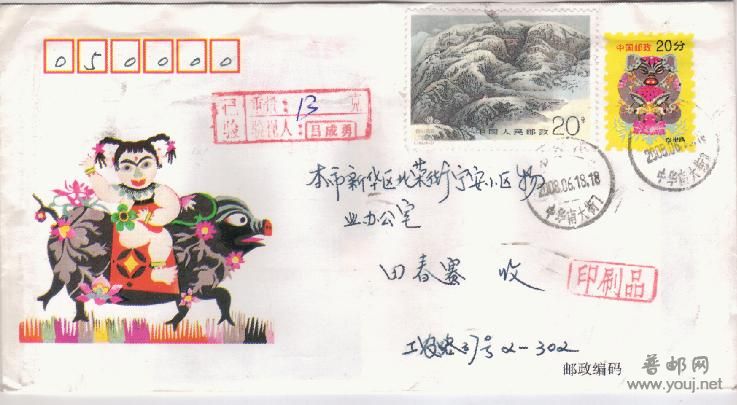 050000
中国邮政 20分
中国人民邮政 20分
已验 重量：13 克
验视人：吕成勇
2008.06.18.18
中华南大街
中华南大街
本市新华区北荣街宁安小区物
业办公室
田春 收
印刷品
号2-302
邮政编码
普邮网
www.youj.net